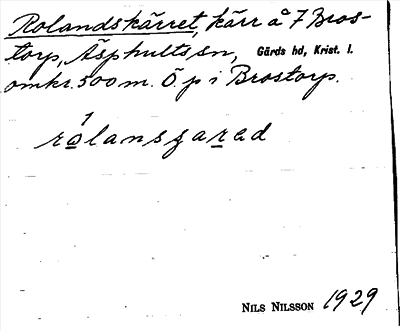 Rolandskärret, kärr å 7 Bros-
torp, Äsphults sn, Gärds hd, Krist. l.
omkr. 500 m. Ö. p i Brostorp.
rolansgarad
NILS NILSSON 1929